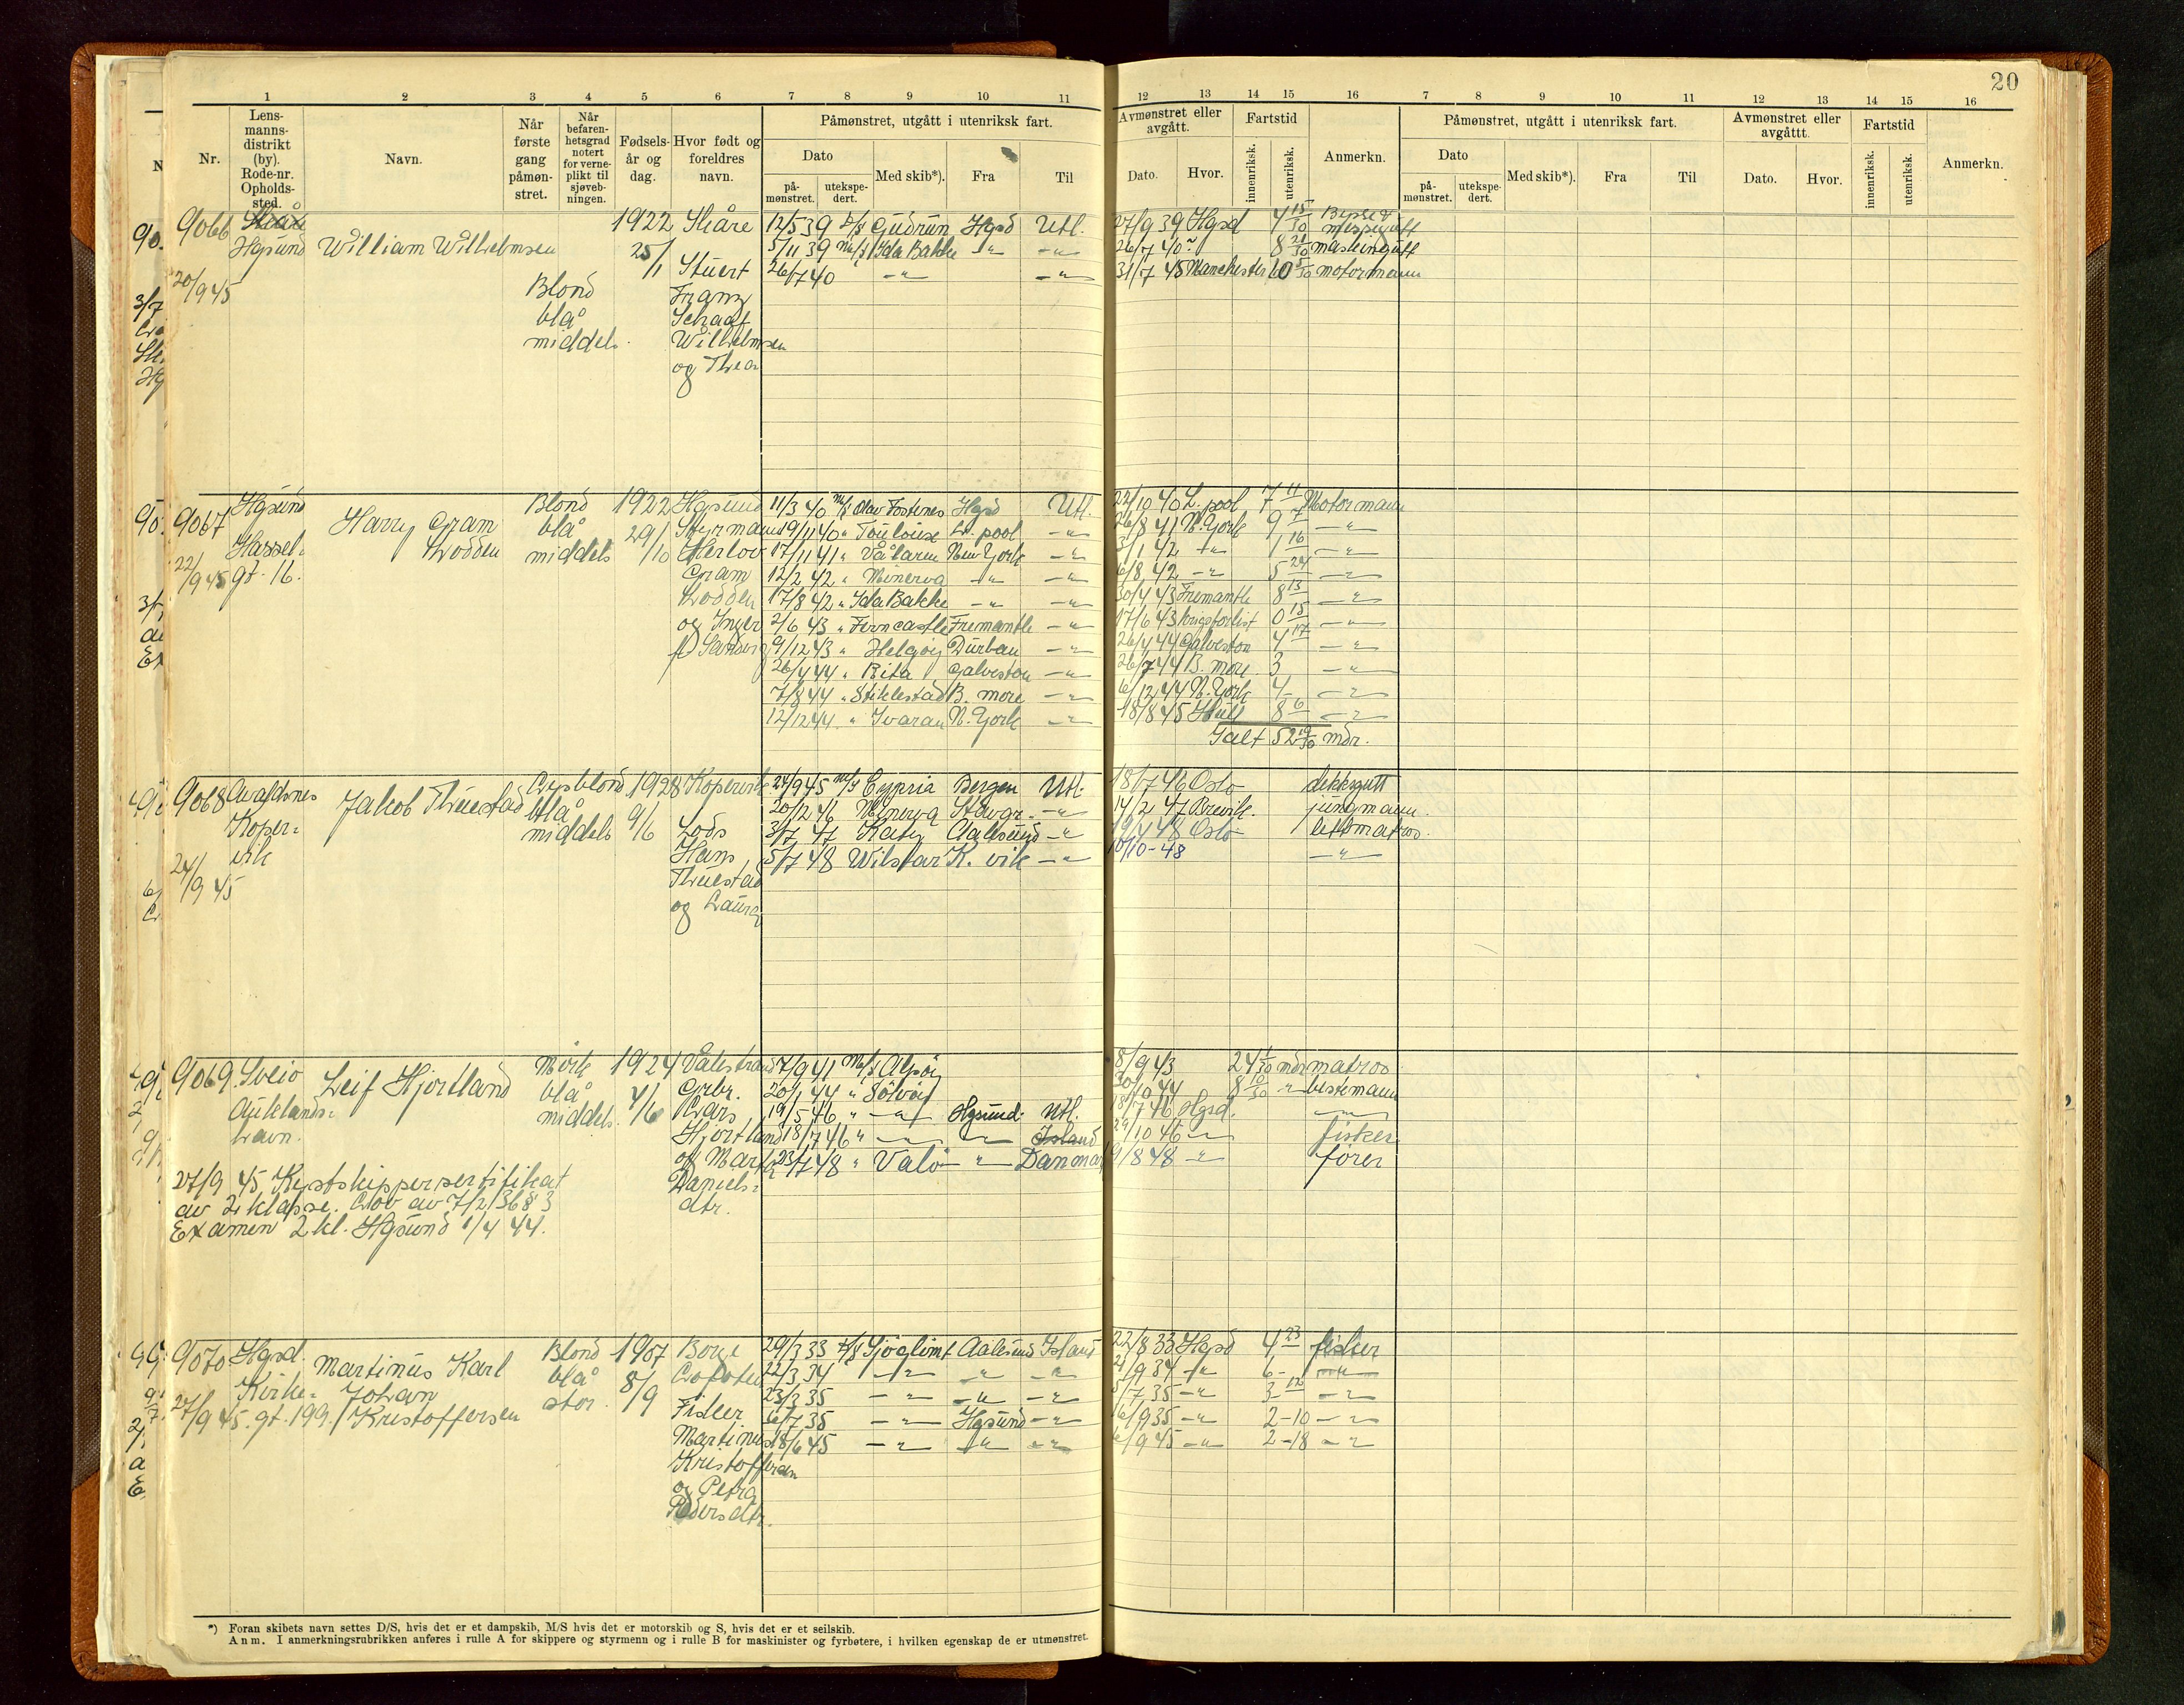 20
1 2 3 4 5 6 7 8 9 10 11 12 13 14 15 16 7 8 9 10 11 12 13 14 15 16
Nr.
Lens-
manns-
distrikt
(by).
Rode-nr.
Opholds-
sted.
Navn.
Når
første
gang
påmøn-
stret.
Når
befaren-
hetsgrad
notert
for verne-
plikt til
sjøveb-
ningen.
Fødsels-
år og
dag.
Hvor født og
foreldres
navn.
Påmønstret, utgått i utenriksk fart.
Dato
på-
mønstret.
utekspe-
dert.
Med skib*).
Fra
Til
Avmønstret eller
avgått.
Dato.
Hvor.
Fartstid
innenriksk.
utenriksk.
Anmerkn.
Påmønstret, utgått i utenriksk fart.
Dato
på-
mønstret.
utekspe-
dert.
Med skib*).
Fra
Til
Avmønstret eller
avgåttt.
Dato.
Hvor.
Fartstid
innenriksk.
utenriksk.
Anmerkn.
9066 Skåre 1922 Skåre 12/5 39 D/S Gudrun Hgsd Utl. 27/9 39 Hgsd 4 15/30
Hgsund William Wilhelmsen 25/1 5/11 39 M/S Ida Bakke -"- -"- 26/7 40 -"- 8 21/30 maskingutt
20/9 45 Stuert 26/7 40 -"- -"- 31/7 45 Manchester 60 5/30 motormann
Blond Franz
blå Schaaf
middels. Wilhelmsen
og Thea
9067 Hgsund Harry Gram Lodden Blond 1922 Hgsund 11/3 40 M/S Olav Fostenes Hgsd Utl. 22/10 40 L.pool 7 11 Motormann
Hassel- blå 29/10 Styrmann 19/11 40 " Toulouse L. pool -"- 26/8 41 N.York 9 7 -"-
22/9 45 gt. 16. middels Herlov 17/11 41 " Vålaren New York -"- 3/1 42 -"- 1 16 -"-
Gram 12/2 42 " Minerva -"- -"- 6/8 42 -"- 5 24 -"-
Lodden 17/8 42 " Ida Bakke -"- -"- 30/4 43 Fremantle 8 13 -"-
og Inger 2/6 43 " Ferncastle Fremantle -"- 17/6 43 krigsforlist 0 15 -"-
9/12 43 " Helgøy Durban -"- 26/4 44 Galveston 4 17 -"-
26/4 44 " Rita Galveston -"- 26/7 44 B. more 3 -"-
7/8 44 " Stiklestad B. more -"- 6/12 44 N.York 4- -"-
12/12 44 " Ivaran N.York -"- 18/8 45 Hull 8 6 -"-
Ialt 52 19/30 mdr.
9068 Avaldsnes Jakob Thuestad Lysblond 1928 Kopervik 24/9 45 M/S Cypria Bergen Utl. 18/7 46 Oslo dekksgutt
Koper- blå 9/6 20/12 46 Minerva Stavgr. -"- 14/2 47 Brevik. jungmann.
vik middels Lods 3/7 47 Katy Aalesund -"- 19/4 48 Oslo lettmatros.
24/9 45 Hans 5/7 48 Wilstar K. vik -"- 10/10-48 -"-
Thuestad
og Laura
9069. Sveio Leif Hjortland Mörk 1924 Vålestrand 7/9 41 M/S Alsöy 8/9 43 24 1/30 mdr matros
Auklands- blå 4/6 Grbr. 20/1 44 " Sölvöy 30/10 44 8 10/30 -"- bestemann
havn. middels. Lars 19/5 46 " -"- Hgsund. Utl. 18/7 46 Hgsd. -"-
Hjortland 18/7 46 " -"- -"- Island 29/10 46 -"- fisker
og Marta 23/7 48 " Valö -"- Danmark 9/8 48 -"- fører
27/9 45 Kystskippersertifikat Daniels-
av 2. klasse. Lov av 7/2 36 § 3 dtr.
Examen 2 kl. Hgsund 1/4 44.
9070 Hgsd. Martinus Karl Johan Kristoffersen Blond 1907 Borge 29/3 33 D/S Sjøglimt Aalesund Island 22/8 33 Hgsd 4 23 fisker
Kirke- blå 8/9 Lofoten 22/3 34 -"- -"- -"- 21/9 34 -"- 6- -"-
27/9 45. gt. 199. stor. Fisker 23/3 35 -"- -"- -"- 5/7 35 -"- 3 12 -"-
6/7 35 -"- Hgsund -"- 16/9 35 -"- 2-10 -"-
Martinus 18/6 45 -"- -"- -"- 6/9 45 -"- 2-18 -"-
Kristoffersen
og Petra
Pedersdtr.
*) Foran skibets navn settes D/S, hvis det er et dampskib, M/S hvis det er motorskib og S, hvis det er et seilskib.
Anm. I anmerkningsrubrikken anføres i rulle A for skippere og styrmenn og i rulle B for maskinister og fyrbøtere, i hvilken egenskap de er utmønstret.